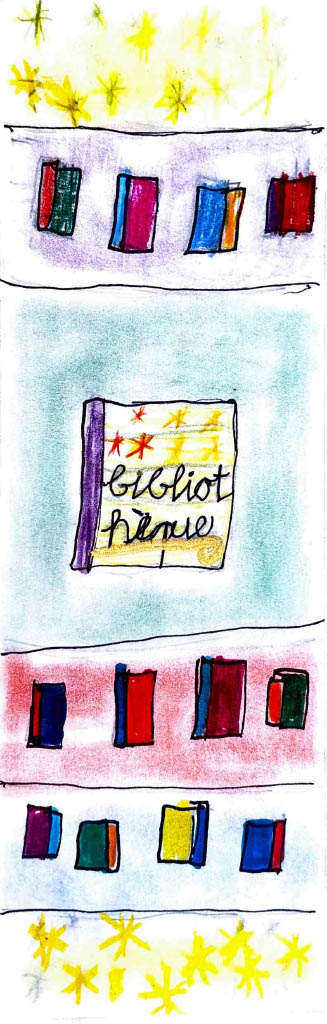 bibliot
hèque